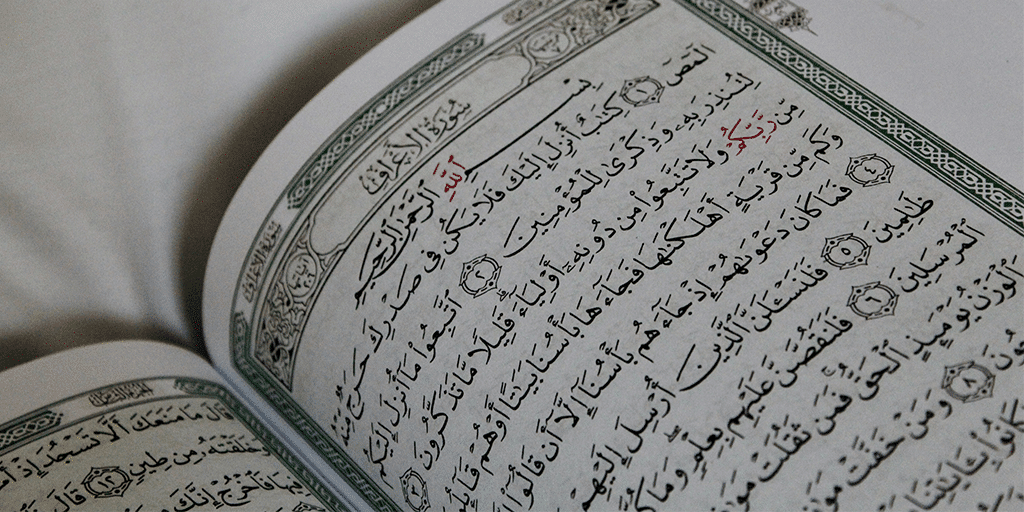 سُورَةُ الأَعْرَافِ
بِسْمِ ٱللَّهِ ٱلرَّحْمَٰنِ ٱلرَّحِيمِ
الٓمٓصٓ ١ كِتَٰبٌ أُنزِلَ إِلَيْكَ فَلَا يَكُن فِى صَدْرِكَ حَرَجٌ مِّنْهُ
لِتُنذِرَ بِهِۦ وَذِكْرَىٰ لِلْمُؤْمِنِينَ ٢ ٱتَّبِعُوا۟ مَآ أُنزِلَ إِلَيْكُم
مِّن رَّبِّكُمْ وَلَا تَتَّبِعُوا۟ مِن دُونِهِۦٓ أَوْلِيَآءَ قَلِيلًا مَّا تَذَكَّرُونَ ٣
وَكَم مِّن قَرْيَةٍ أَهْلَكْنَٰهَا فَجَآءَهَا بَأْسُنَا بَيَٰتًا أَوْ هُمْ قَآئِلُ
٤ فَمَا كَانَ دَعْوَىٰهُمْ إِذْ جَآءَهُم بَأْسُنَآ إِلَّآ أَن قَالُوٓا۟
ظَٰلِمِينَ ٥ فَلَنَسْـَٔلَنَّ ٱلَّذِينَ أُرْسِلَ إِلَيْهِمْ
ٱلْمُرْسَلِينَ ٦ فَلَنَقُصَّنَّ عَلَيْهِم بِعِلْمٍ وَمَا كُنَّا
وَٱلْوَزْنُ يَوْمَئِذٍ ٱلْحَقُّ فَمَن ثَقُلَتْ
٨ وَمَنْ خَفَّتْ
كَانُوا۟ بِـَٔايَٰتِنَا
قَالَ مَا مَنَعَكَ أَلَّا تَسْجُدَ إِذْ
خَلَقْتَهُۥ مِن طِينٍ ١٢ قَالَ
فَٱخْرُجْ إِنَّكَ